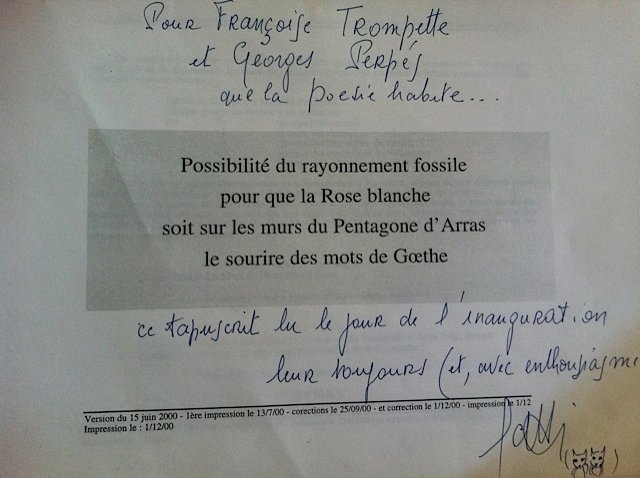 Pour Françoise Trompette
et Georges Perpés
que la poésie habite...
Possibilité du rayonnement fossile
pour que la Rose blanche
soit sur les murs du Pentagone d'Arras
le sourire des mots de Gœthe
ce tapuscrit lu le jour de l'inauguration
leur toujours (et, avec enthousiasme
Version du 15 juin 2000 - 1ère impression le 13/7/00 - corections le 25/09/00 - et correction le 1/12/00 - impression le 1/12
Impression le : 1/12/00